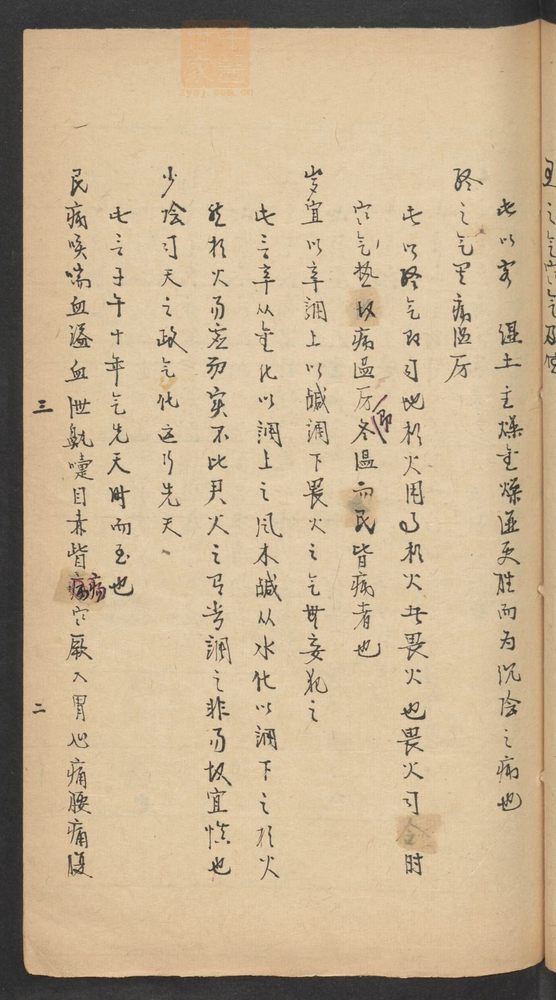 此以客湿土主燥金燥湿更胜而为沉阴之病也
终之气里病温厉
此以终气即司地相火用事相火者畏火也畏火司令时
寒气热故病温厉即冬温而民皆病者也
岁宜以辛调上以咸调下畏火之气毋妄犯之
此言辛从金化以调上之风木咸从水化以调下之相火
然相火易虚易实不比君火之可常调之非易故宜慎也
少阴司天之政气化运行先天
此言子午十年气先天时而至也
民病咳喘血溢血泄鼽嚏目赤眥疡寒厥入胃心痛腰痛腹
三
二